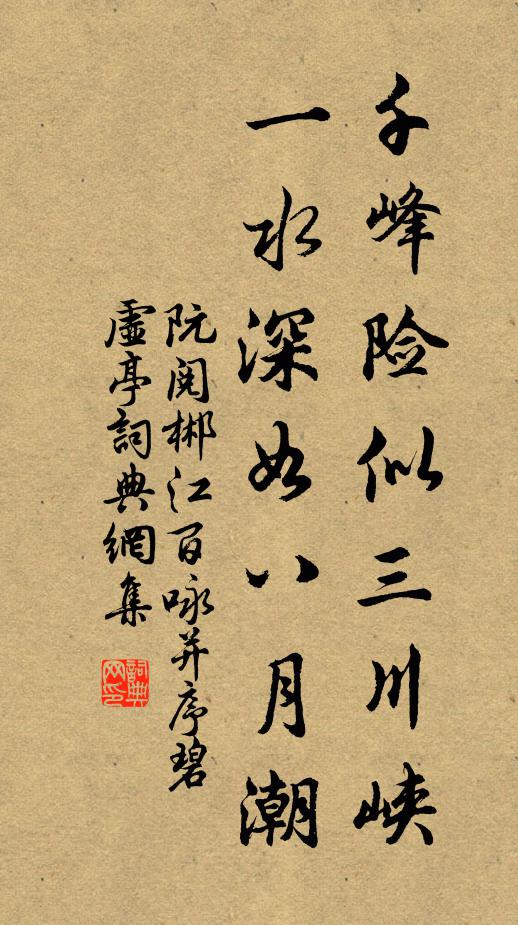 千峰险似三川峡
一水深如八月潮
阮阅郴江百咏并序碧
虚亭詞典網集
詞典网印